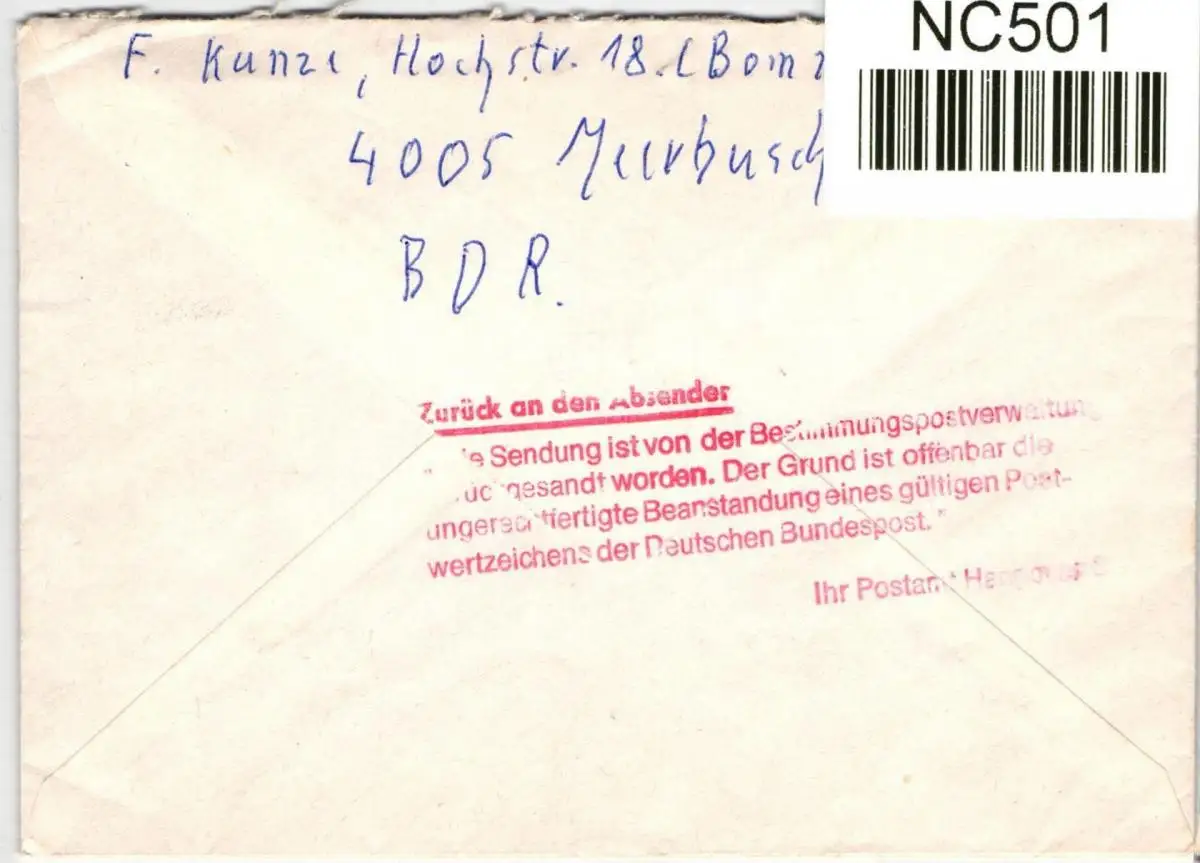 NC501
F. Kunze, Hochstr. 18. (
4005 Meerbusch
BDR.
Zurück an den Absender
" Sendung ist von der Bestimmungspostverwaltung
gesandt worden. Der Grund ist offenbar die
ungerechtfertigte Beanstandung eines gültigen Post-
wertzeichens der Deutschen Bundespost."
Ihr Postamt Hannover